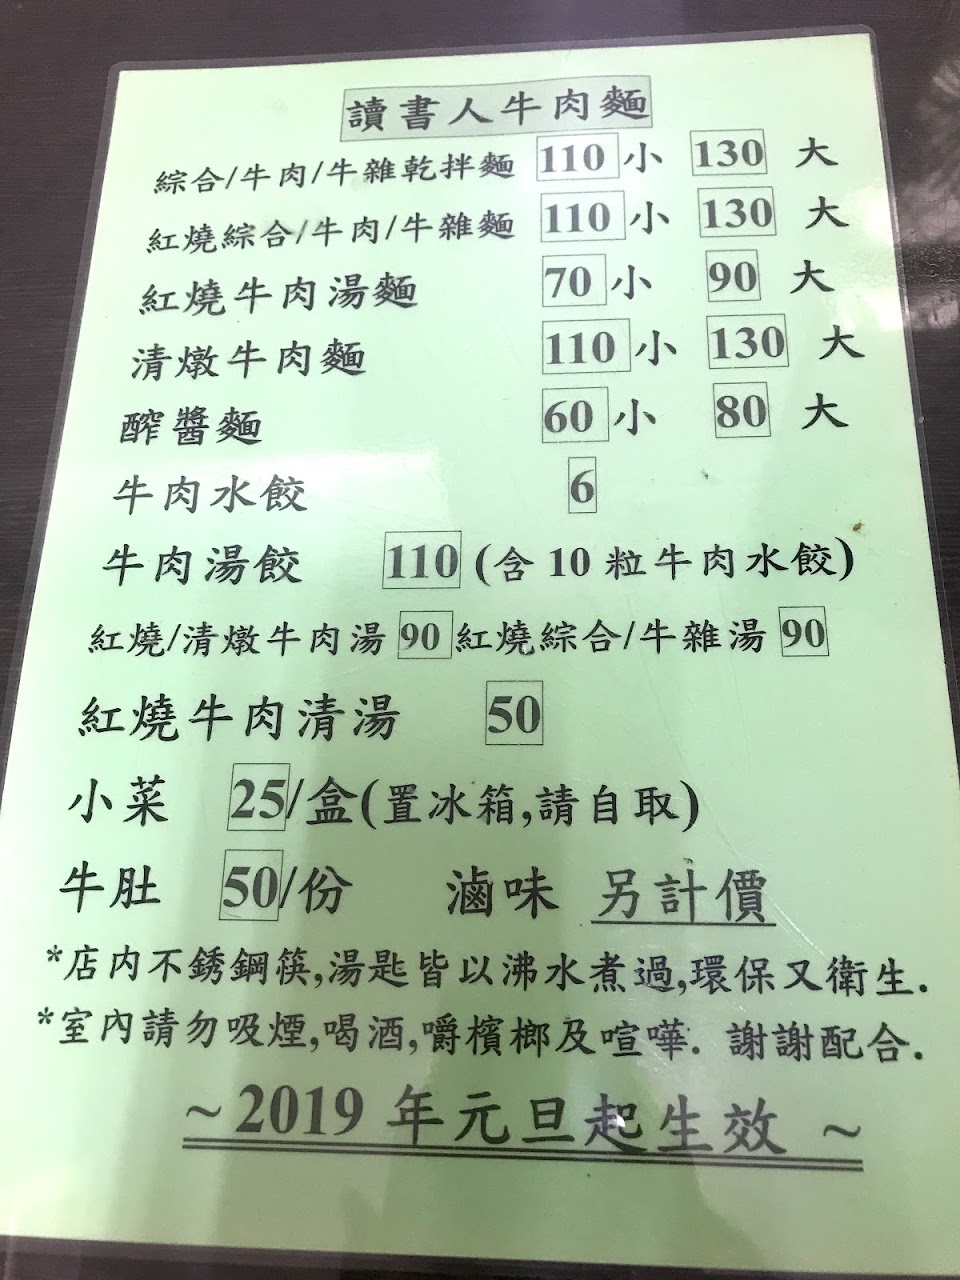 讀書人牛肉麵
綜合/牛肉/牛雜乾拌麵 110 小 130 大
紅燒綜合/牛肉/牛雜麵 110 小 130 大
紅燒牛肉湯麵 70 小 90 大
清燉牛肉麵 110 小 130 大
醡醬麵 60 小 80 大
牛肉水餃 6
牛肉湯餃 110 (含 10 粒牛肉水餃)
紅燒/清燉牛肉湯 90 紅燒綜合/牛雜湯 90
紅燒牛肉清湯 50
小菜 25/盒(置冰箱,請自取)
牛肚 50/份 滷味 另計價
*店內不銹鋼筷,湯匙皆以沸水煮過,環保又衛生.
*室內請勿吸煙,喝酒,嚼檳榔及喧嘩. 謝謝配合.
~2019 年元旦起生效 ~